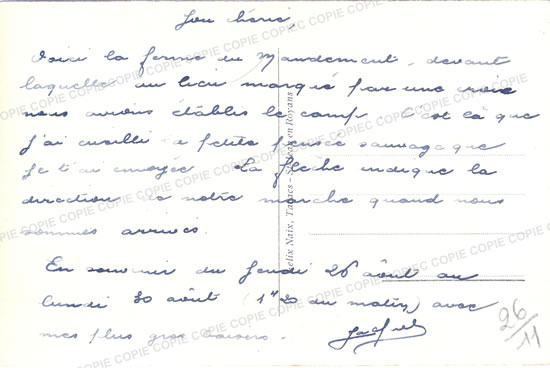 Mon chéri,
Voici la ferme du Mandement, devant
laquelle au lieu marqué par une croix
nous avions établis le camp. C'est là que
j'ai cueilli la petite pensée sauvage que
je t'ai envoyée. La flèche indique la
direction de notre marche quand nous
sommes arrivés.
En souvenir du Jeudi 26 août au
lundi 30 août (1h20 du matin) avec
mes plus gros baisers.
26/11
Felix Naix, Tabacs - St-Jean en Royans
COPIE COPIE COPIE COPIE COPIE COPIE